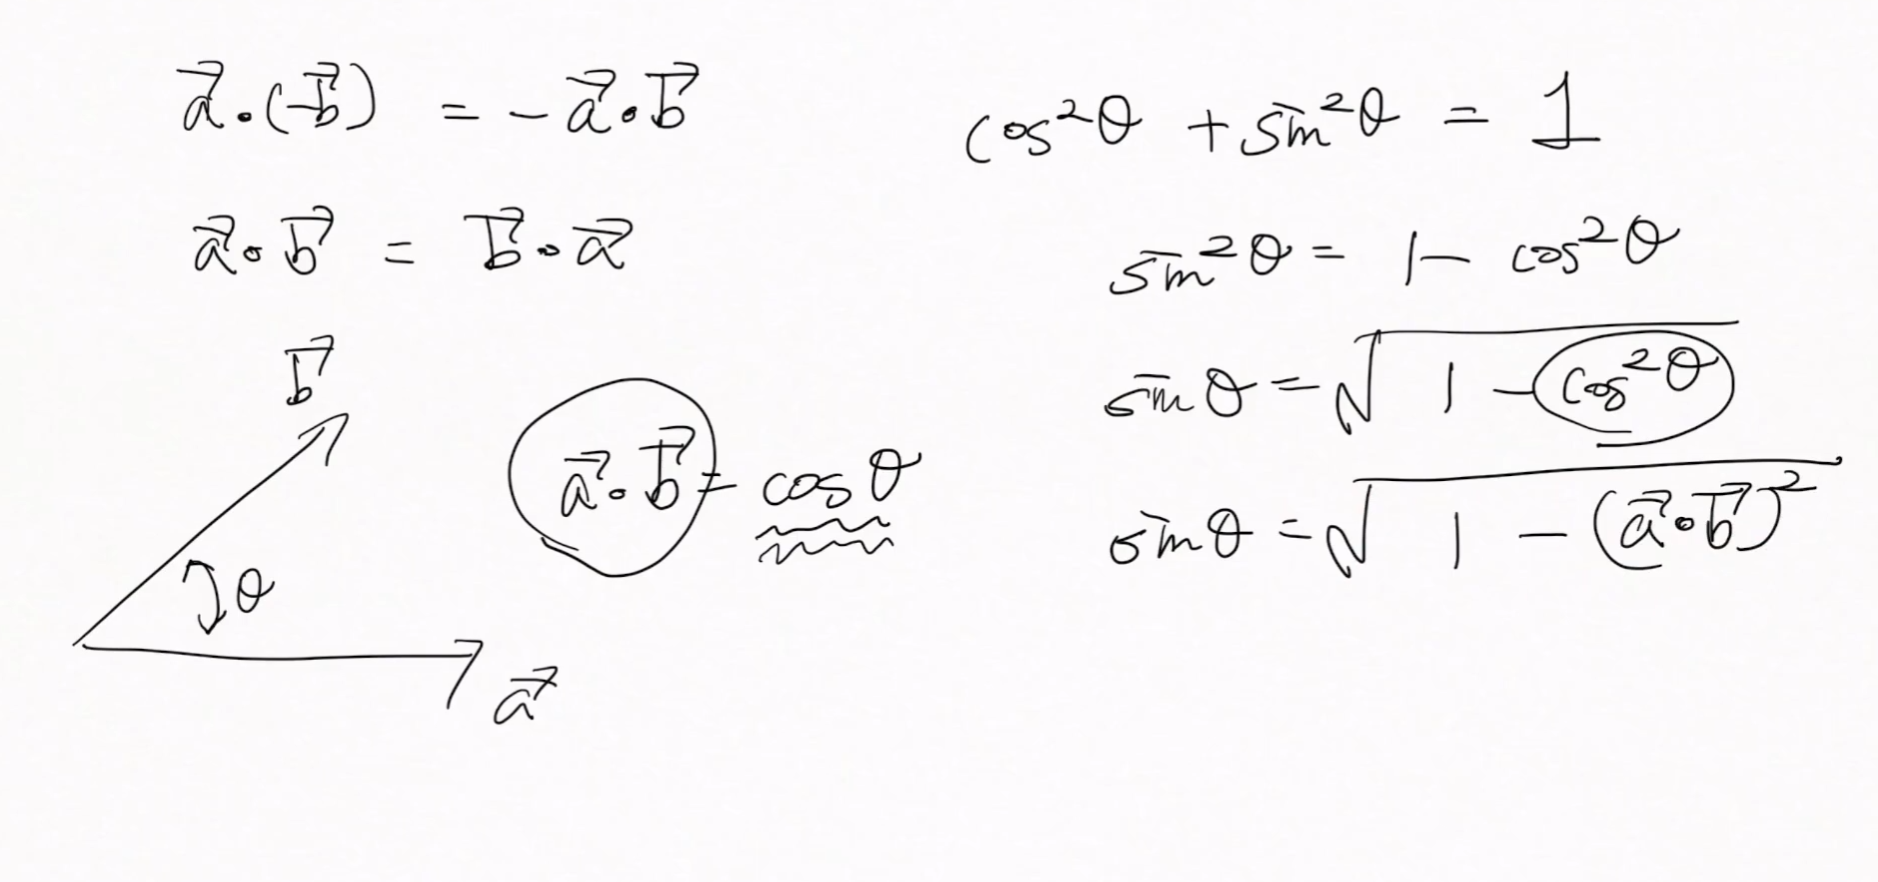 $\vec{a} \cdot (-\vec{b}) = -\vec{a} \cdot \vec{b}$
$\vec{a} \cdot \vec{b} = \vec{b} \cdot \vec{a}$
$\vec{b}$
$\theta$
$\vec{a}$
$\vec{a} \cdot \vec{b} = \cos\theta$
$\cos^2\theta + \sin^2\theta = 1$
$\sin^2\theta = 1 - \cos^2\theta$
$\sin\theta = \sqrt{1 - \cos^2\theta}$
$\sin\theta = \sqrt{1 - (\vec{a} \cdot \vec{b})^2}$